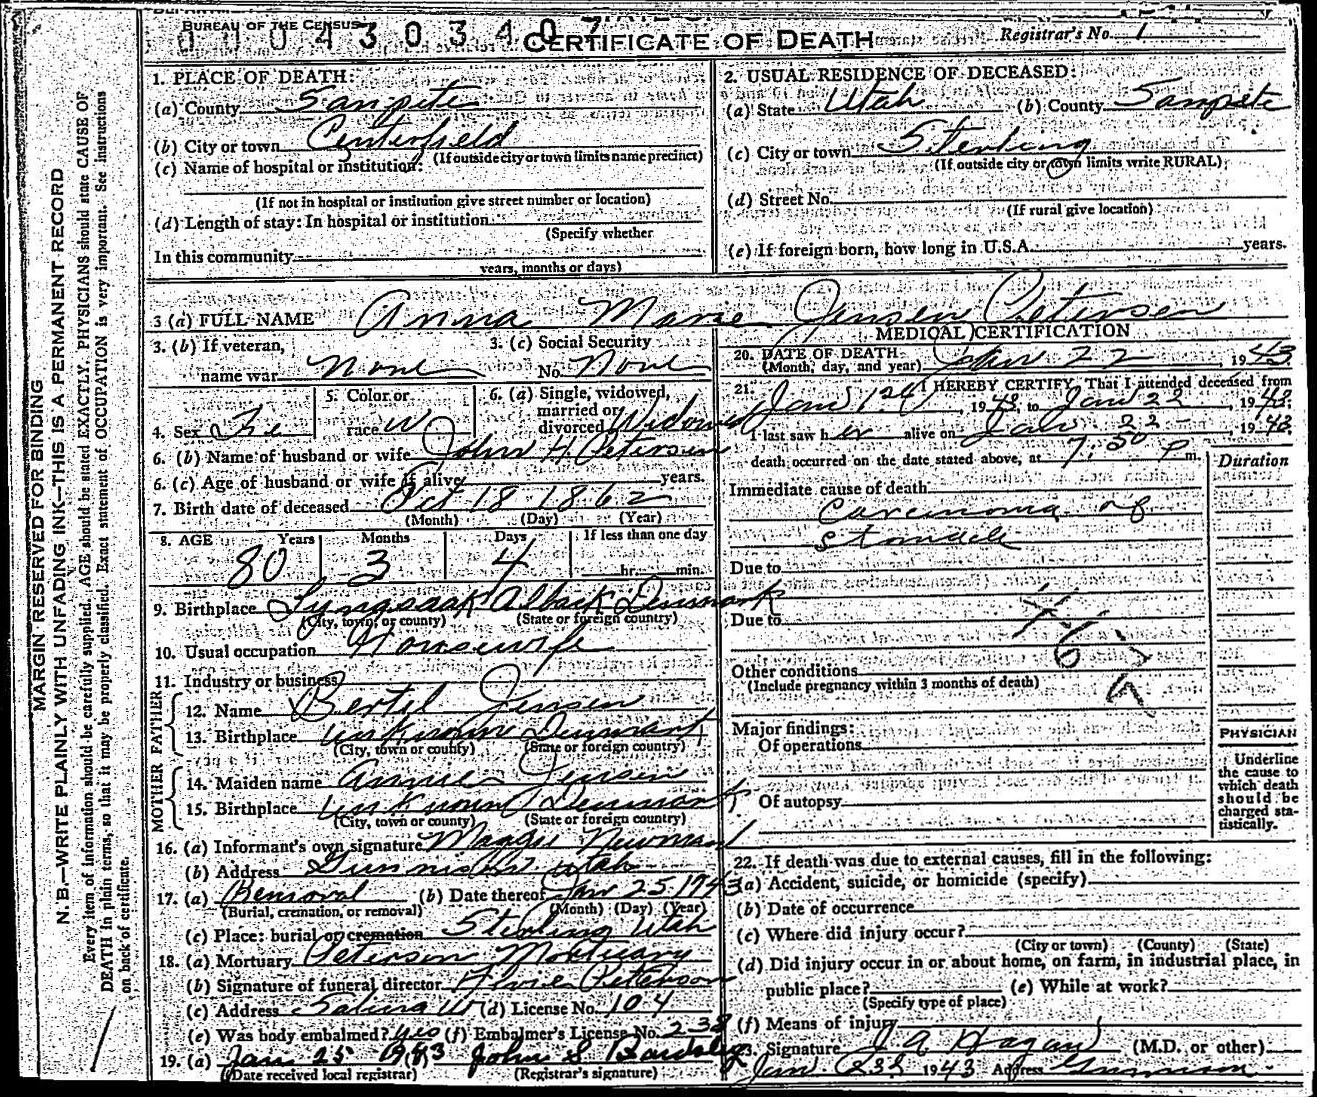 BUREAU OF THE CENSUS
0 1 0 4 3 0 3 4 0 7
CERTIFICATE OF DEATH
Registrar's No. 1
MARGIN RESERVED FOR BINDING
N. B.—WRITE PLAINLY WITH UNFADING INK—THIS IS A PERMANENT RECORD
Every item of information should be carefully supplied. AGE should be stated EXACTLY. PHYSICIANS should state CAUSE OF
DEATH in plain terms, so that it may be properly classified. Exact statement of OCCUPATION is very important. See instructions
on back of certificate.
1. PLACE OF DEATH:
(a) County Sanpete
(b) City or town Centerfield
(If outside city or town limits name precinct)
(c) Name of hospital or institution:
(If not in hospital or institution give street number or location)
(d) Length of stay: In hospital or institution
(Specify whether
In this community
years, months or days)
2. USUAL RESIDENCE OF DECEASED:
(a) State Utah (b) County Sanpete
(c) City or town Sterling
(If outside city or town limits write RURAL)
(d) Street No.
(If rural give location)
(e) If foreign born, how long in U.S.A. years.
3 (a) FULL NAME Anna Marie Jensen Petersen
3. (b) If veteran, name war None
3. (c) Social Security No. None
4. Sex Fe
5. Color or race W
6. (a) Single, widowed, married or divorced Widowed
6. (b) Name of husband or wife John H Petersen
6. (c) Age of husband or wife if alive years.
7. Birth date of deceased Oct 18 1862
(Month) (Day) (Year)
8. AGE Years Months Days If less than one day
80 3 4 hr. min.
9. Birthplace Albaek Denmark
(City, town, or county) (State or foreign country)
10. Usual occupation Housewife
11. Industry or business
FATHER
12. Name Bertel Jensen
13. Birthplace Unknown Denmark
(City, town or county) (State or foreign country)
MOTHER
14. Maiden name Annie Jensen
15. Birthplace Unknown Denmark
(City, town or county) (State or foreign country)
16. (a) Informant's own signature Maggie Newman
(b) Address Gunnison Utah
17. (a) Removal (b) Date thereof Jan 25, 1943
(Burial, cremation, or removal) (Month) (Day) (Year)
(c) Place: burial or cremation Sterling Utah
18. (a) Mortuary Petersen Mortuary
(b) Signature of funeral director Petersen
(c) Address Salina Ut (d) License No. 104
(e) Was body embalmed? yes (f) Embalmer's License No. 238
19. (a) Jan 25 1943 John S
(Date received local registrar) (Registrar's signature)
MEDICAL CERTIFICATION
20. DATE OF DEATH Jan 22 1943
(Month, day, and year)
21. I HEREBY CERTIFY, That I attended deceased from
Jan 1st 1943, to Jan 22 1943
I last saw her alive on Jan. 22- 1943
death occurred on the date stated above, at 7:30 P m.
Duration
Immediate cause of death
Carcinoma of
Due to
Due to
Other conditions
(Include pregnancy within 3 months of death)
Major findings:
Of operations
Of autopsy
PHYSICIAN
Underline
the cause to
which death
should be
charged sta-
tistically.
22. If death was due to external causes, fill in the following:
(a) Accident, suicide, or homicide (specify)
(b) Date of occurrence
(c) Where did injury occur?
(City or town) (County) (State)
(d) Did injury occur in or about home, on farm, in industrial place, in
public place? (e) While at work?
(Specify type of place)
(f) Means of injury
23. Signature J A Hagan (M.D. or other)
Jan 23d 1943 Address Gunnison